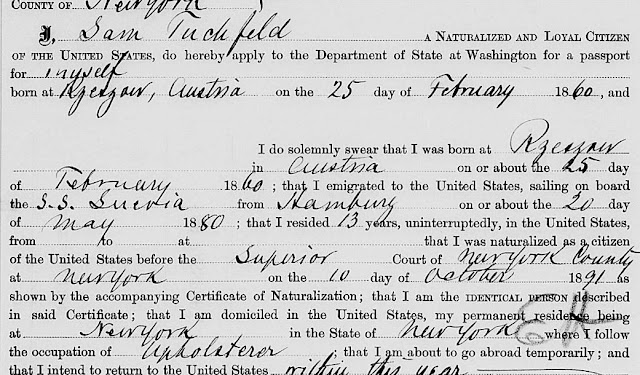 COUNTY OF New York ;
I, Sam Tuchfeld A NATURALIZED AND LOYAL CITIZEN
OF THE UNITED STATES, do hereby apply to the Department of State at Washington for a passport
for myself
born at Rzeszow, Austria on the 25 day of February 1860, and
I do solemnly swear that I was born at Rzeszow
in Austria on or about the 25 day
of February 1860; that I emigrated to the United States, sailing on board
the S.S. Suevia from Hamburg on or about the 20 day
of May 1880; that I resided 13 years, uninterruptedly, in the United States,
from to at that I was naturalized as a citizen
of the United States before the Superior Court of New York County
at New York on the 10 day of October 1891 as
shown by the accompanying Certificate of Naturalization; that I am the IDENTICAL PERSON described
in said Certificate; that I am domiciled in the United States, my permanent residence being
at New York in the State of New York where I follow
the occupation of Upholsterer ; that I am about to go abroad temporarily; and
that I intend to return to the United States within this year